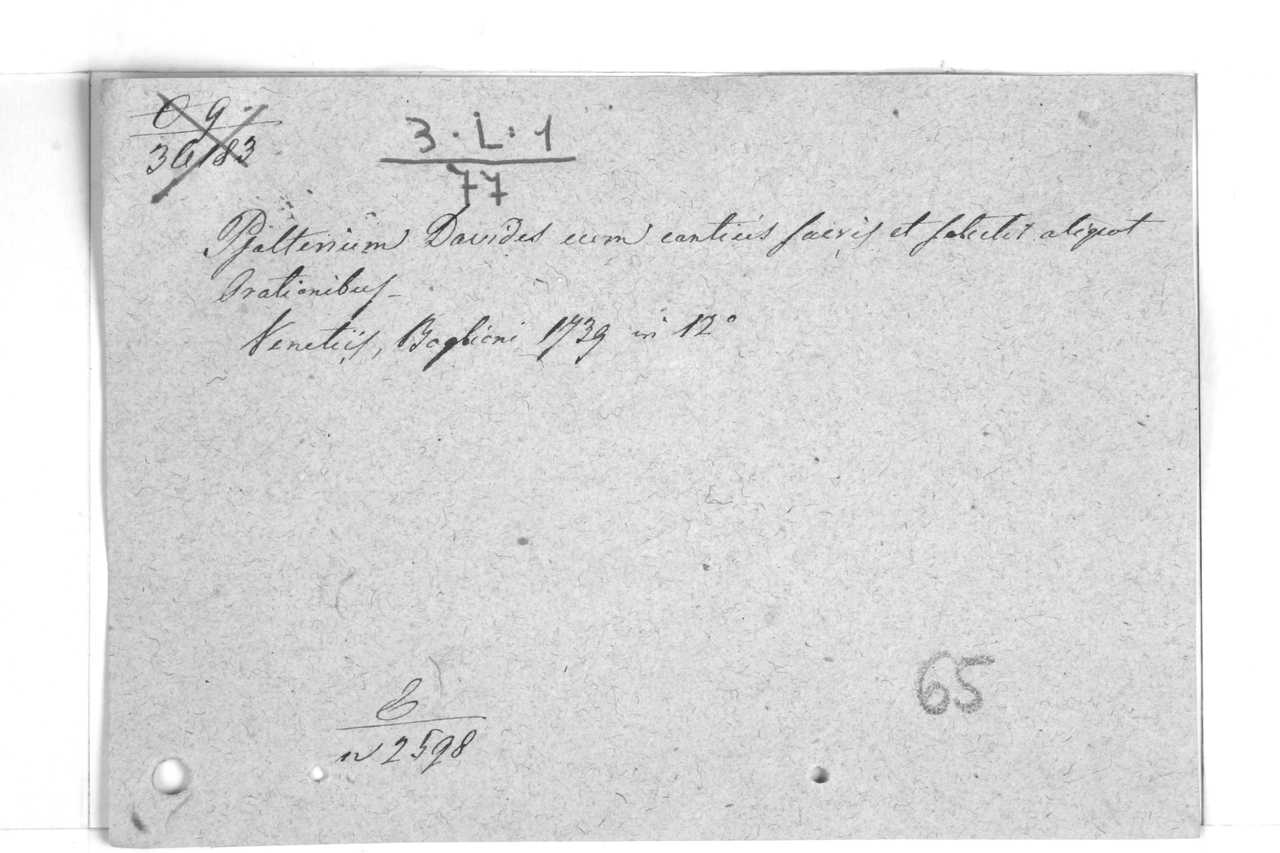 3 · L · 1
77
Psalterium Davides cum canticis sacris et selectis aliquot
Orationibus
Venetiis, Baglioni 1739 in 12°
n 2598
65